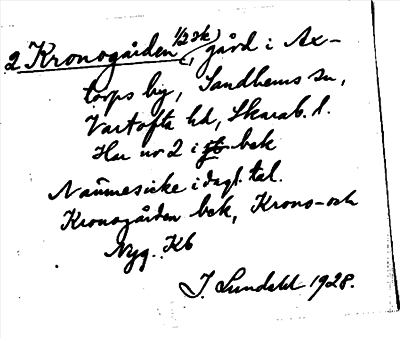 2 Kronogården (1/2 sk), gård i Ax-
torps by, Sandhems sn,
Vartofta hd, Skarab. l.
Har nr 2 i jb bsk
Namnesicke i dagl. tal.
Kronogården bsk, Krono- och
Nyg. Kb
J. Lundahl 1928.